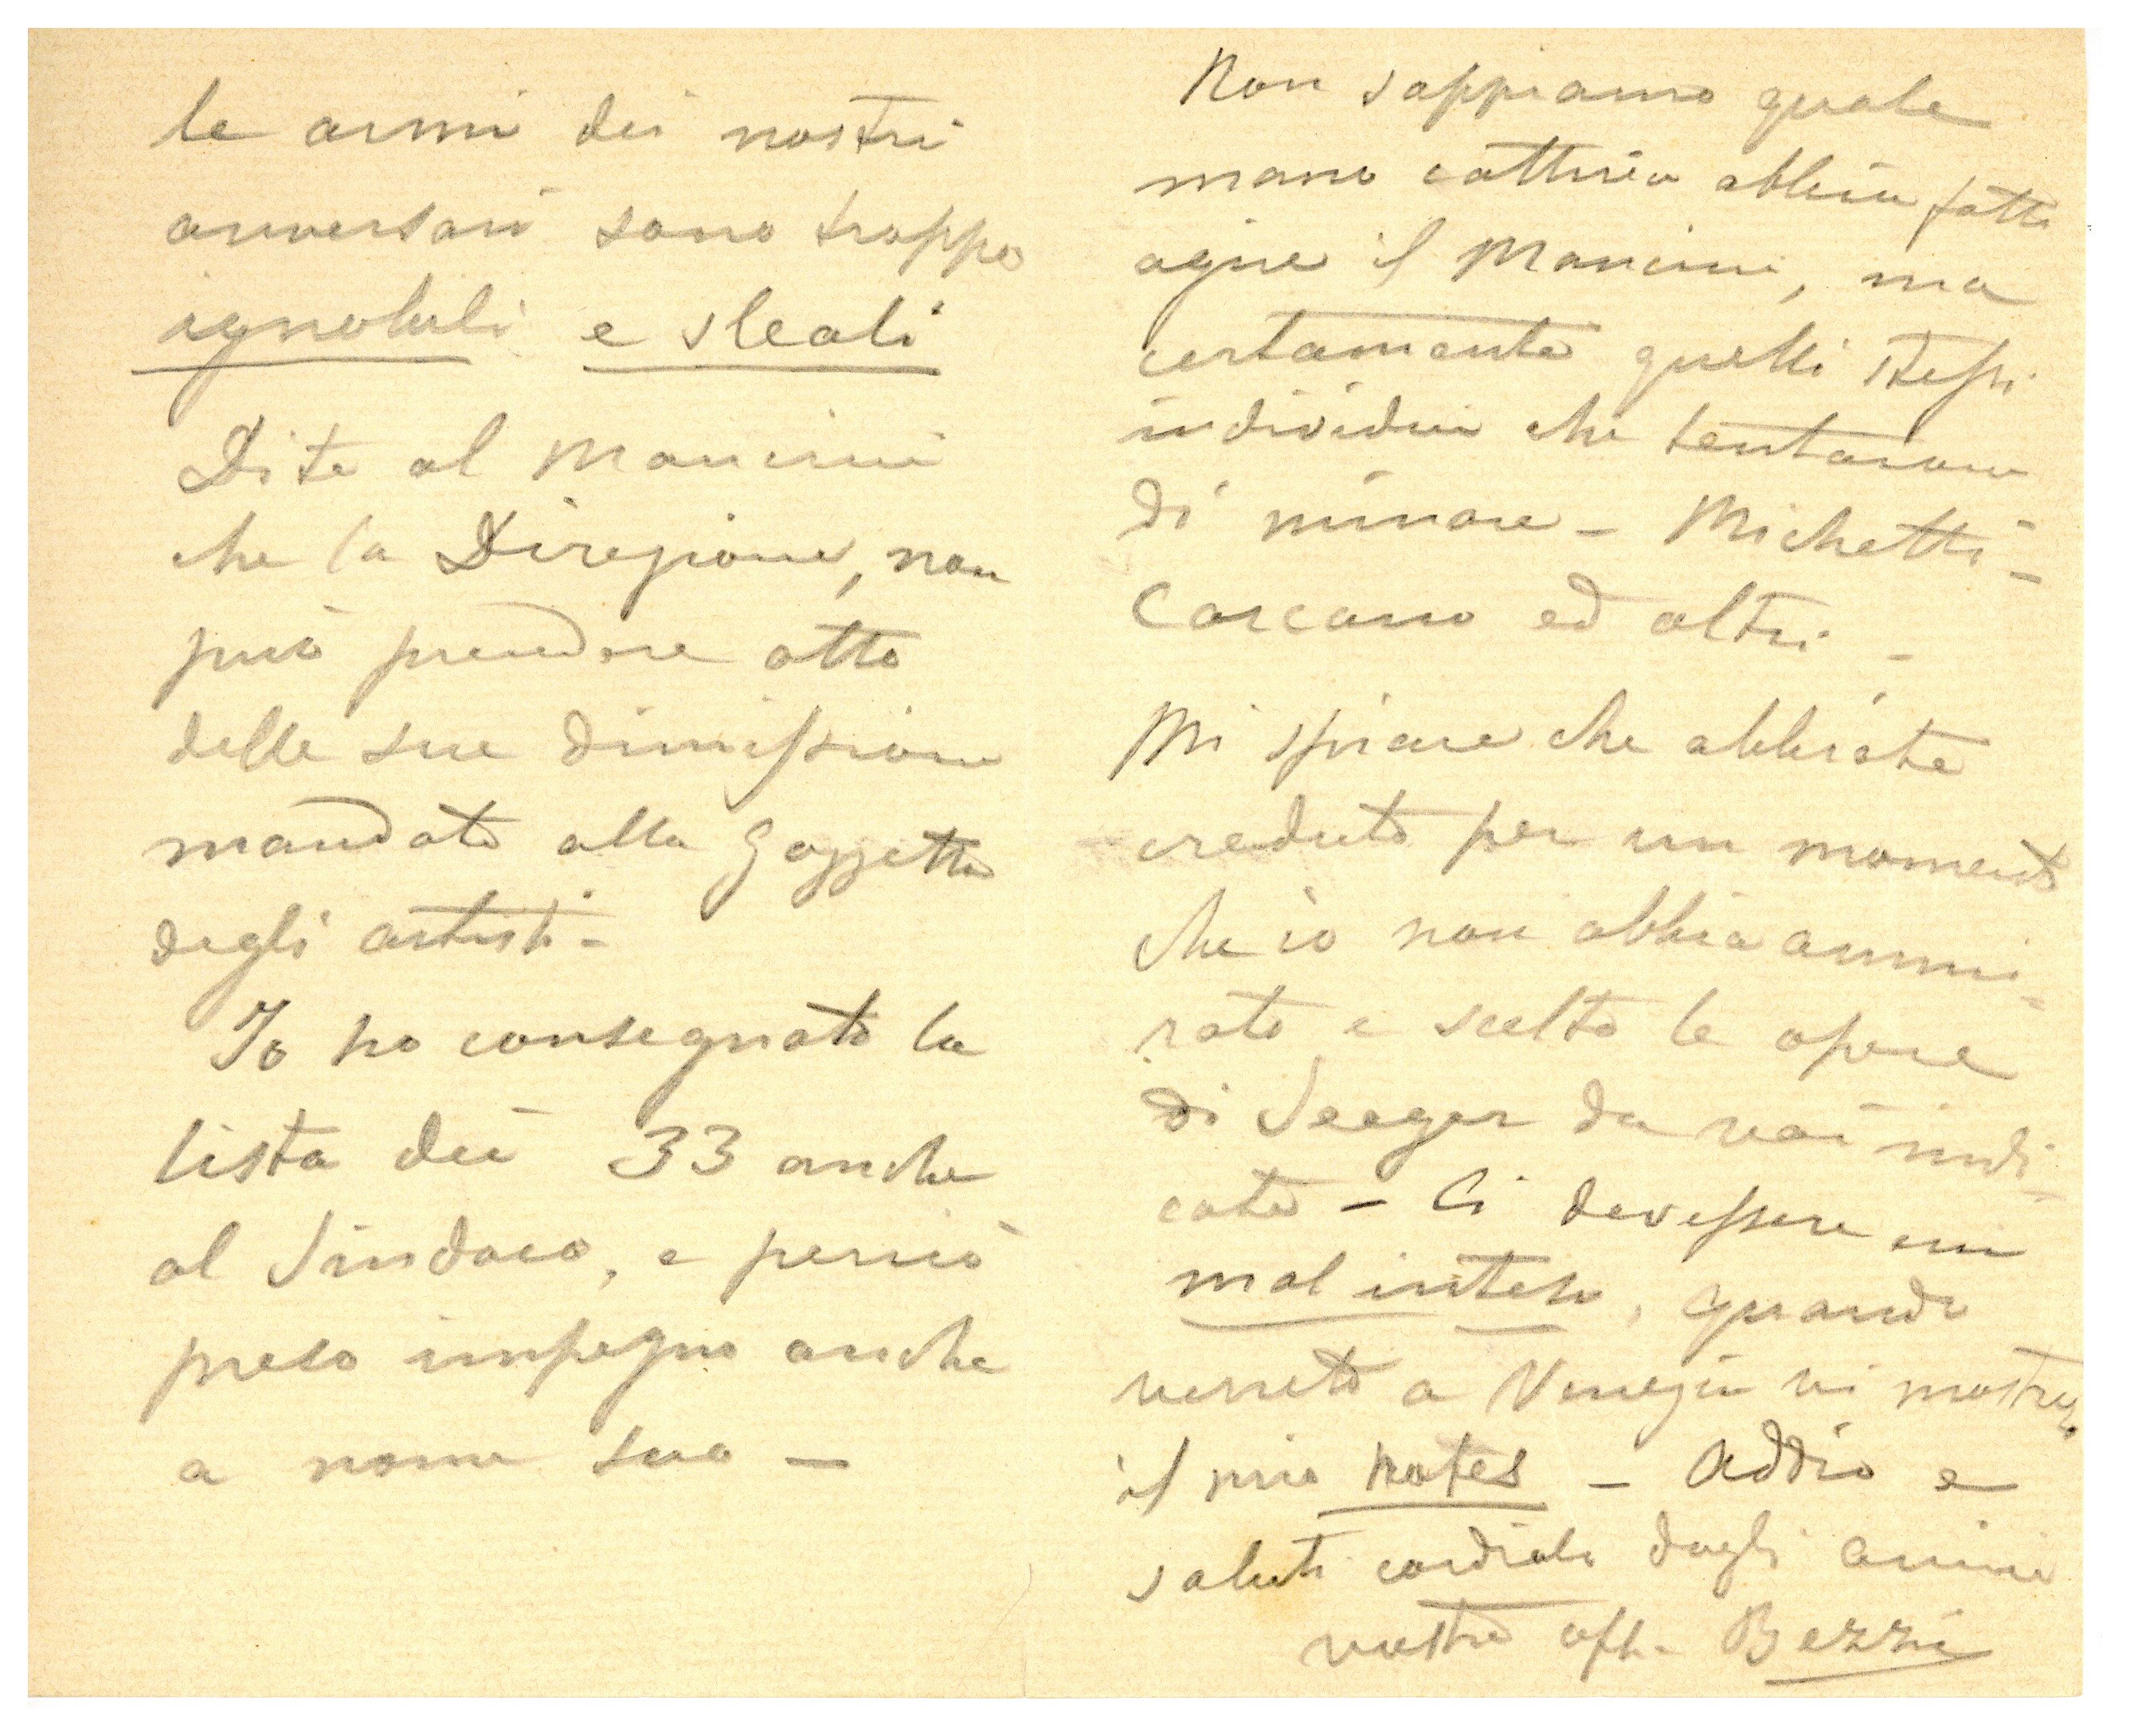 le armi dei nostri
avversari sono troppo
ignobili e sleali
Dite al Mancini
che la Direzione, non
può prendere atto
delle sue dimissioni
mandate alla Gazzetta
degli artisti -
Io ho consegnato la
lista dei 33 anche
al Sindaco, e perciò
preso impegno anche
a nome suo -
Non sappiamo quale
mano cattiva abbia fatto
agire il Mancini, ma
certamente quelli stessi
individui che tentarono
di minare - Michetti -
Carcano ed altri -
Mi spiace che abbiate
creduto per un momento
che io non abbia ammi-
rato e scelto le opere
di Seeger da voi indi-
cate - Ci dev'essere un
mal inteso, quando
verrete a Venezia vi mostrerò
il mio notes - Addio e
saluti cordiali dagli amici
vostro aff. Bezzi